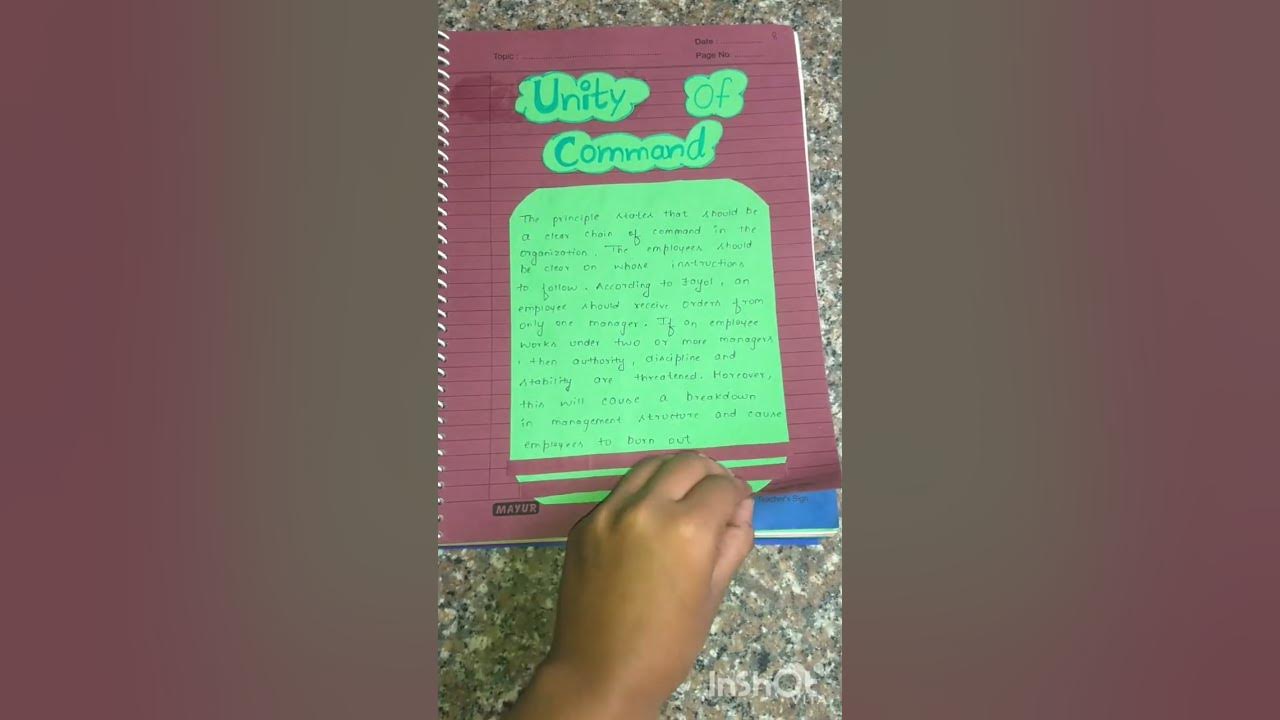 8
Date : ................
Topic : ................................................
Page No. ............
Unity Of
Command
The principle states that should be
a clear chain of command in the
organization. The employees should
be clear on whose instructions
to follow. According to Fayol, an
employee should receive orders from
only one manager. If an employee
works under two or more managers
, then authority, discipline and
stability are threatened. Moreover,
this will cause a breakdown
in management structure and cause
employees to burn out
Teacher's Sign
MAYUR
InShOt